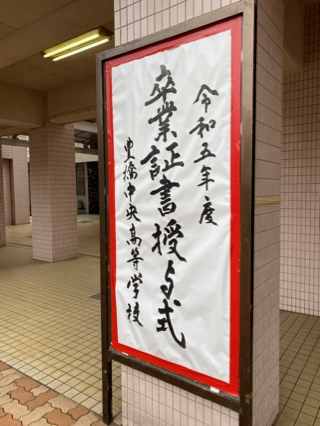 令和五年度
卒業証書授与式
豊橋中央高等学校